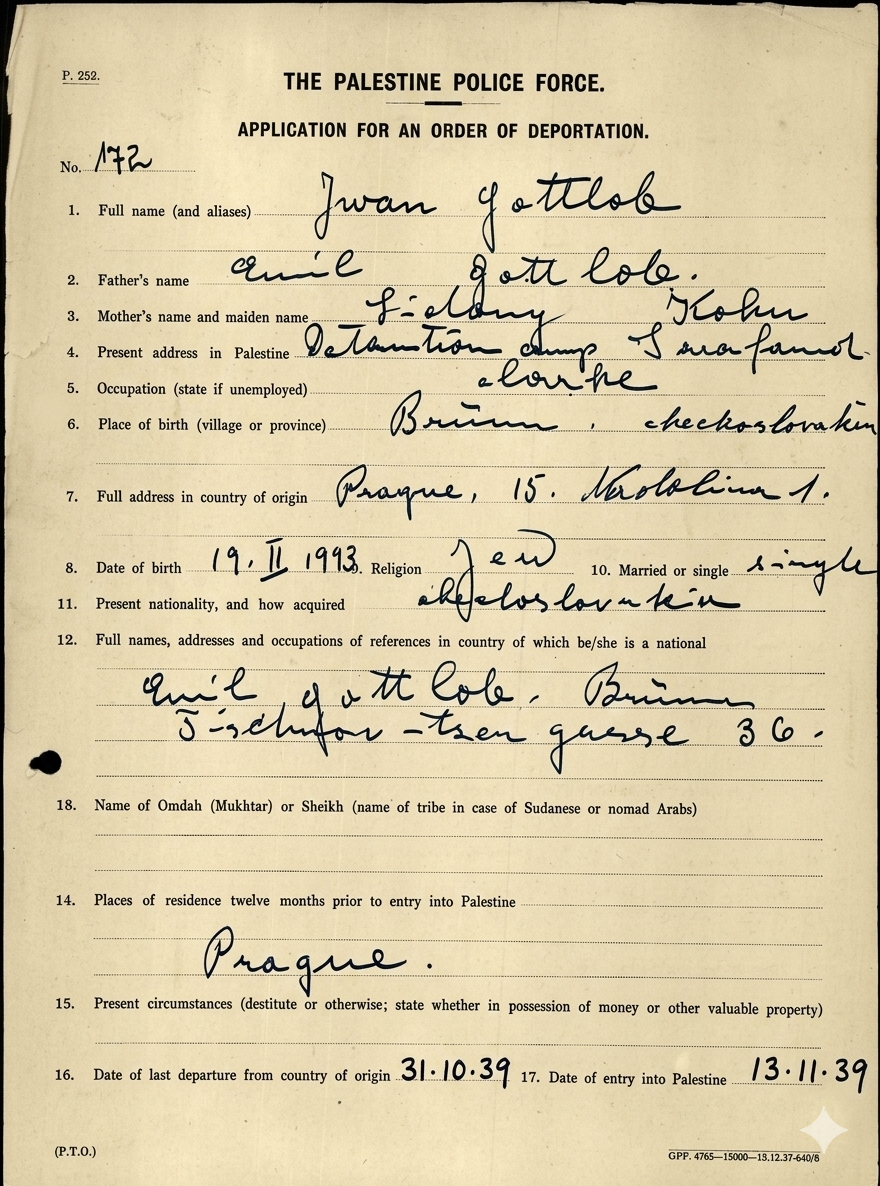 P. 252.
THE PALESTINE POLICE FORCE.
APPLICATION FOR AN ORDER OF DEPORTATION.
No. 172
1. Full name (and aliases) Jwan Gottlob
2. Father's name Emil Gottlob.
3. Mother's name and maiden name Sidony Kohn
4. Present address in Palestine Detamtion camp
5. Occupation (state if unemployed)
6. Place of birth (village or province) Brünn. checkoslovakia
7. Full address in country of origin Prague, 15. 1.
8. Date of birth 19. II 1993. Religion Jew 10. Married or single single
11. Present nationality, and how acquired
12. Full names, addresses and occupations of references in country of which be/she is a national
Emil Gottlob, Brünn
gasse 36.
18. Name of Omdah (Mukhtar) or Sheikh (name of tribe in case of Sudanese or nomad Arabs)
14. Places of residence twelve months prior to entry into Palestine
Prague.
15. Present circumstances (destitute or otherwise; state whether in possession of money or other valuable property)
16. Date of last departure from country of origin 31.10.39 17. Date of entry into Palestine 13.11.39
(P.T.O.) GPP. 4765—15000—13.12.37-640/8